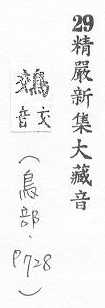 29精嚴新集大藏音
鵁
交音
（鳥部、P728）